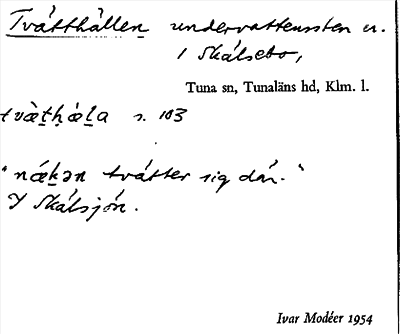 Tvätthällen undervattenssten en.
i Skälsebo,
Tuna sn, Tunaläns hd, Klm. l.
tvæ̀tḥæ̣la s. 103
"næ̀kən tvätter sig där."
I Skälsjön.
Ivar Modéer 1954